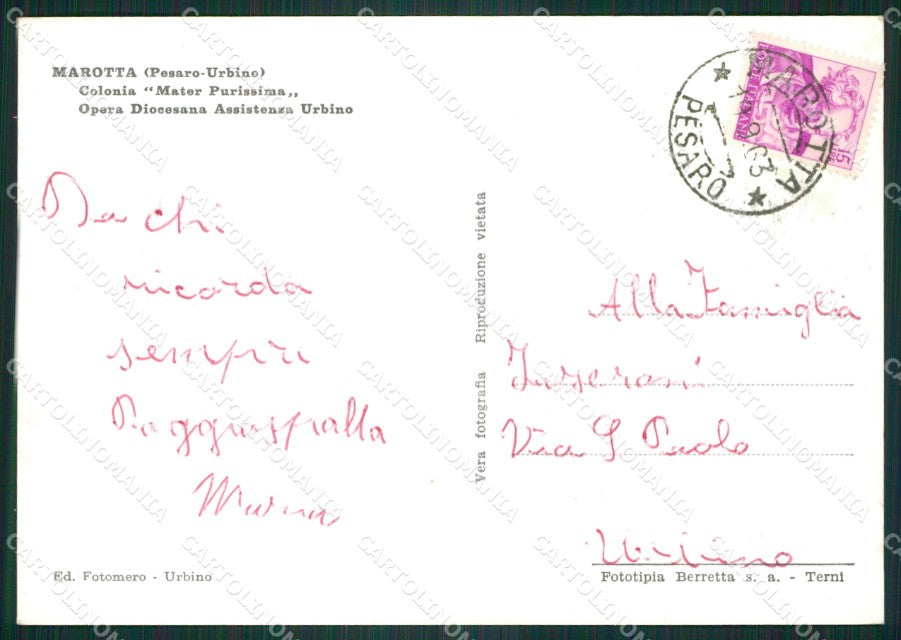 MAROTTA (Pesaro-Urbino)
Colonia “Mater Purissima„
Opera Diocesana Assistenza Urbino
Da chi
ricorda
sempre
Poggiaspalla
Ed. Fotomero - Urbino
Vera fotografia Riproduzione vietata
MAROTTA
PESARO
POSTE ITALIANE
15
Alla Famiglia
Via S Paolo
Urbino
Fototipia Berretta s. a. - Terni
CARTOLINOMANIA